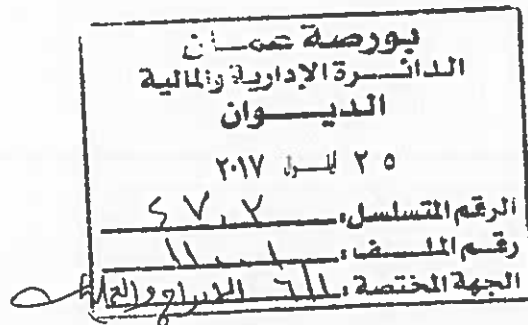 بورصة عمان
الدائرة الإدارية والمالية
الديوان
٢٥ أيلول ٢٠١٧
الرقم المتسلسل: ٤٧٠٢
رقم الملف:
الجهة المختصة: الادراج